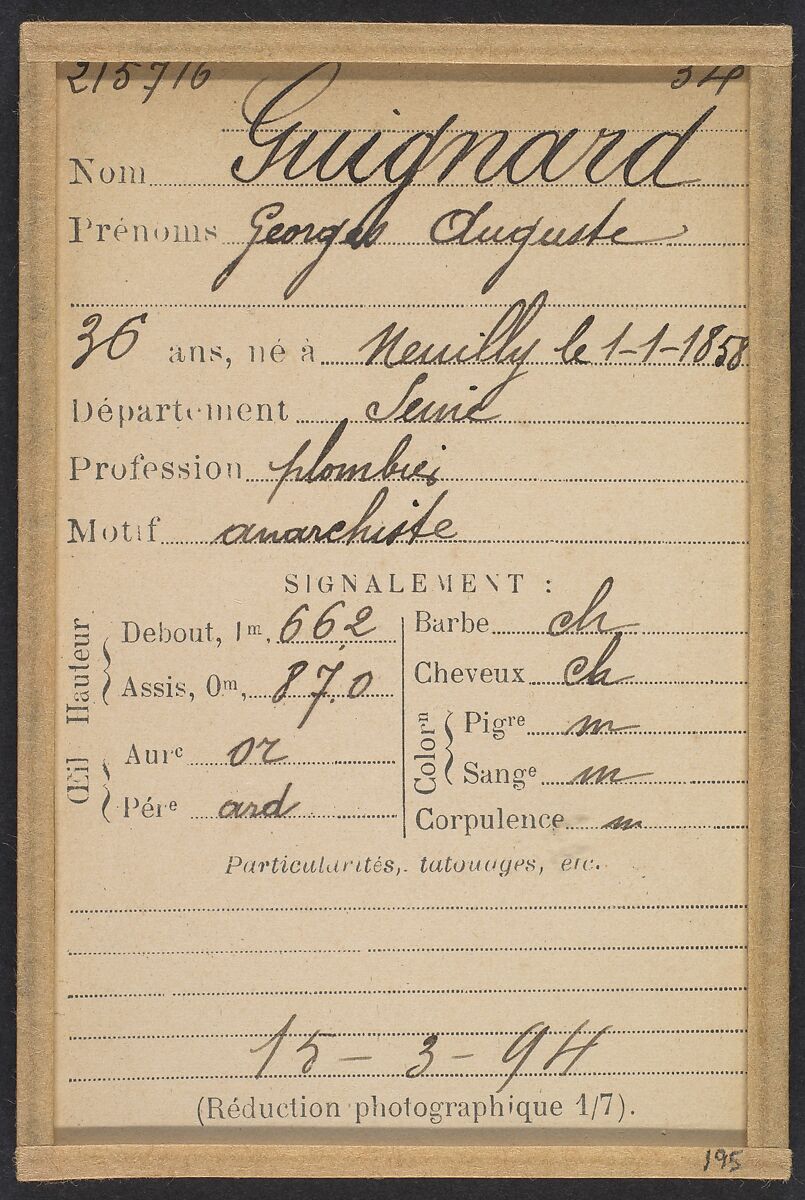 215716 54
Nom Guignard
Prénoms Georges Auguste
36 ans, né à Neuilly le 1-1-1858
Département Seine
Profession plombier
Motif anarchiste
SIGNALEMENT :
Hauteur
Debout, 1m, 66,2
Assis, 0m, 87,0
Œil
Aure or
Pére
Barbe ch
Cheveux ch
Colorn
Pigre m
Sange m
Corpulence m
Particularités, tatouages, etc.
15 - 3 - 94
(Réduction photographique 1/7).
195